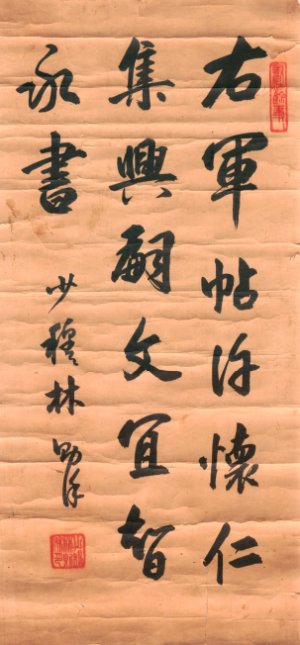 右軍帖許懷仁
集興嗣文宜智
永書
少穆林則徐